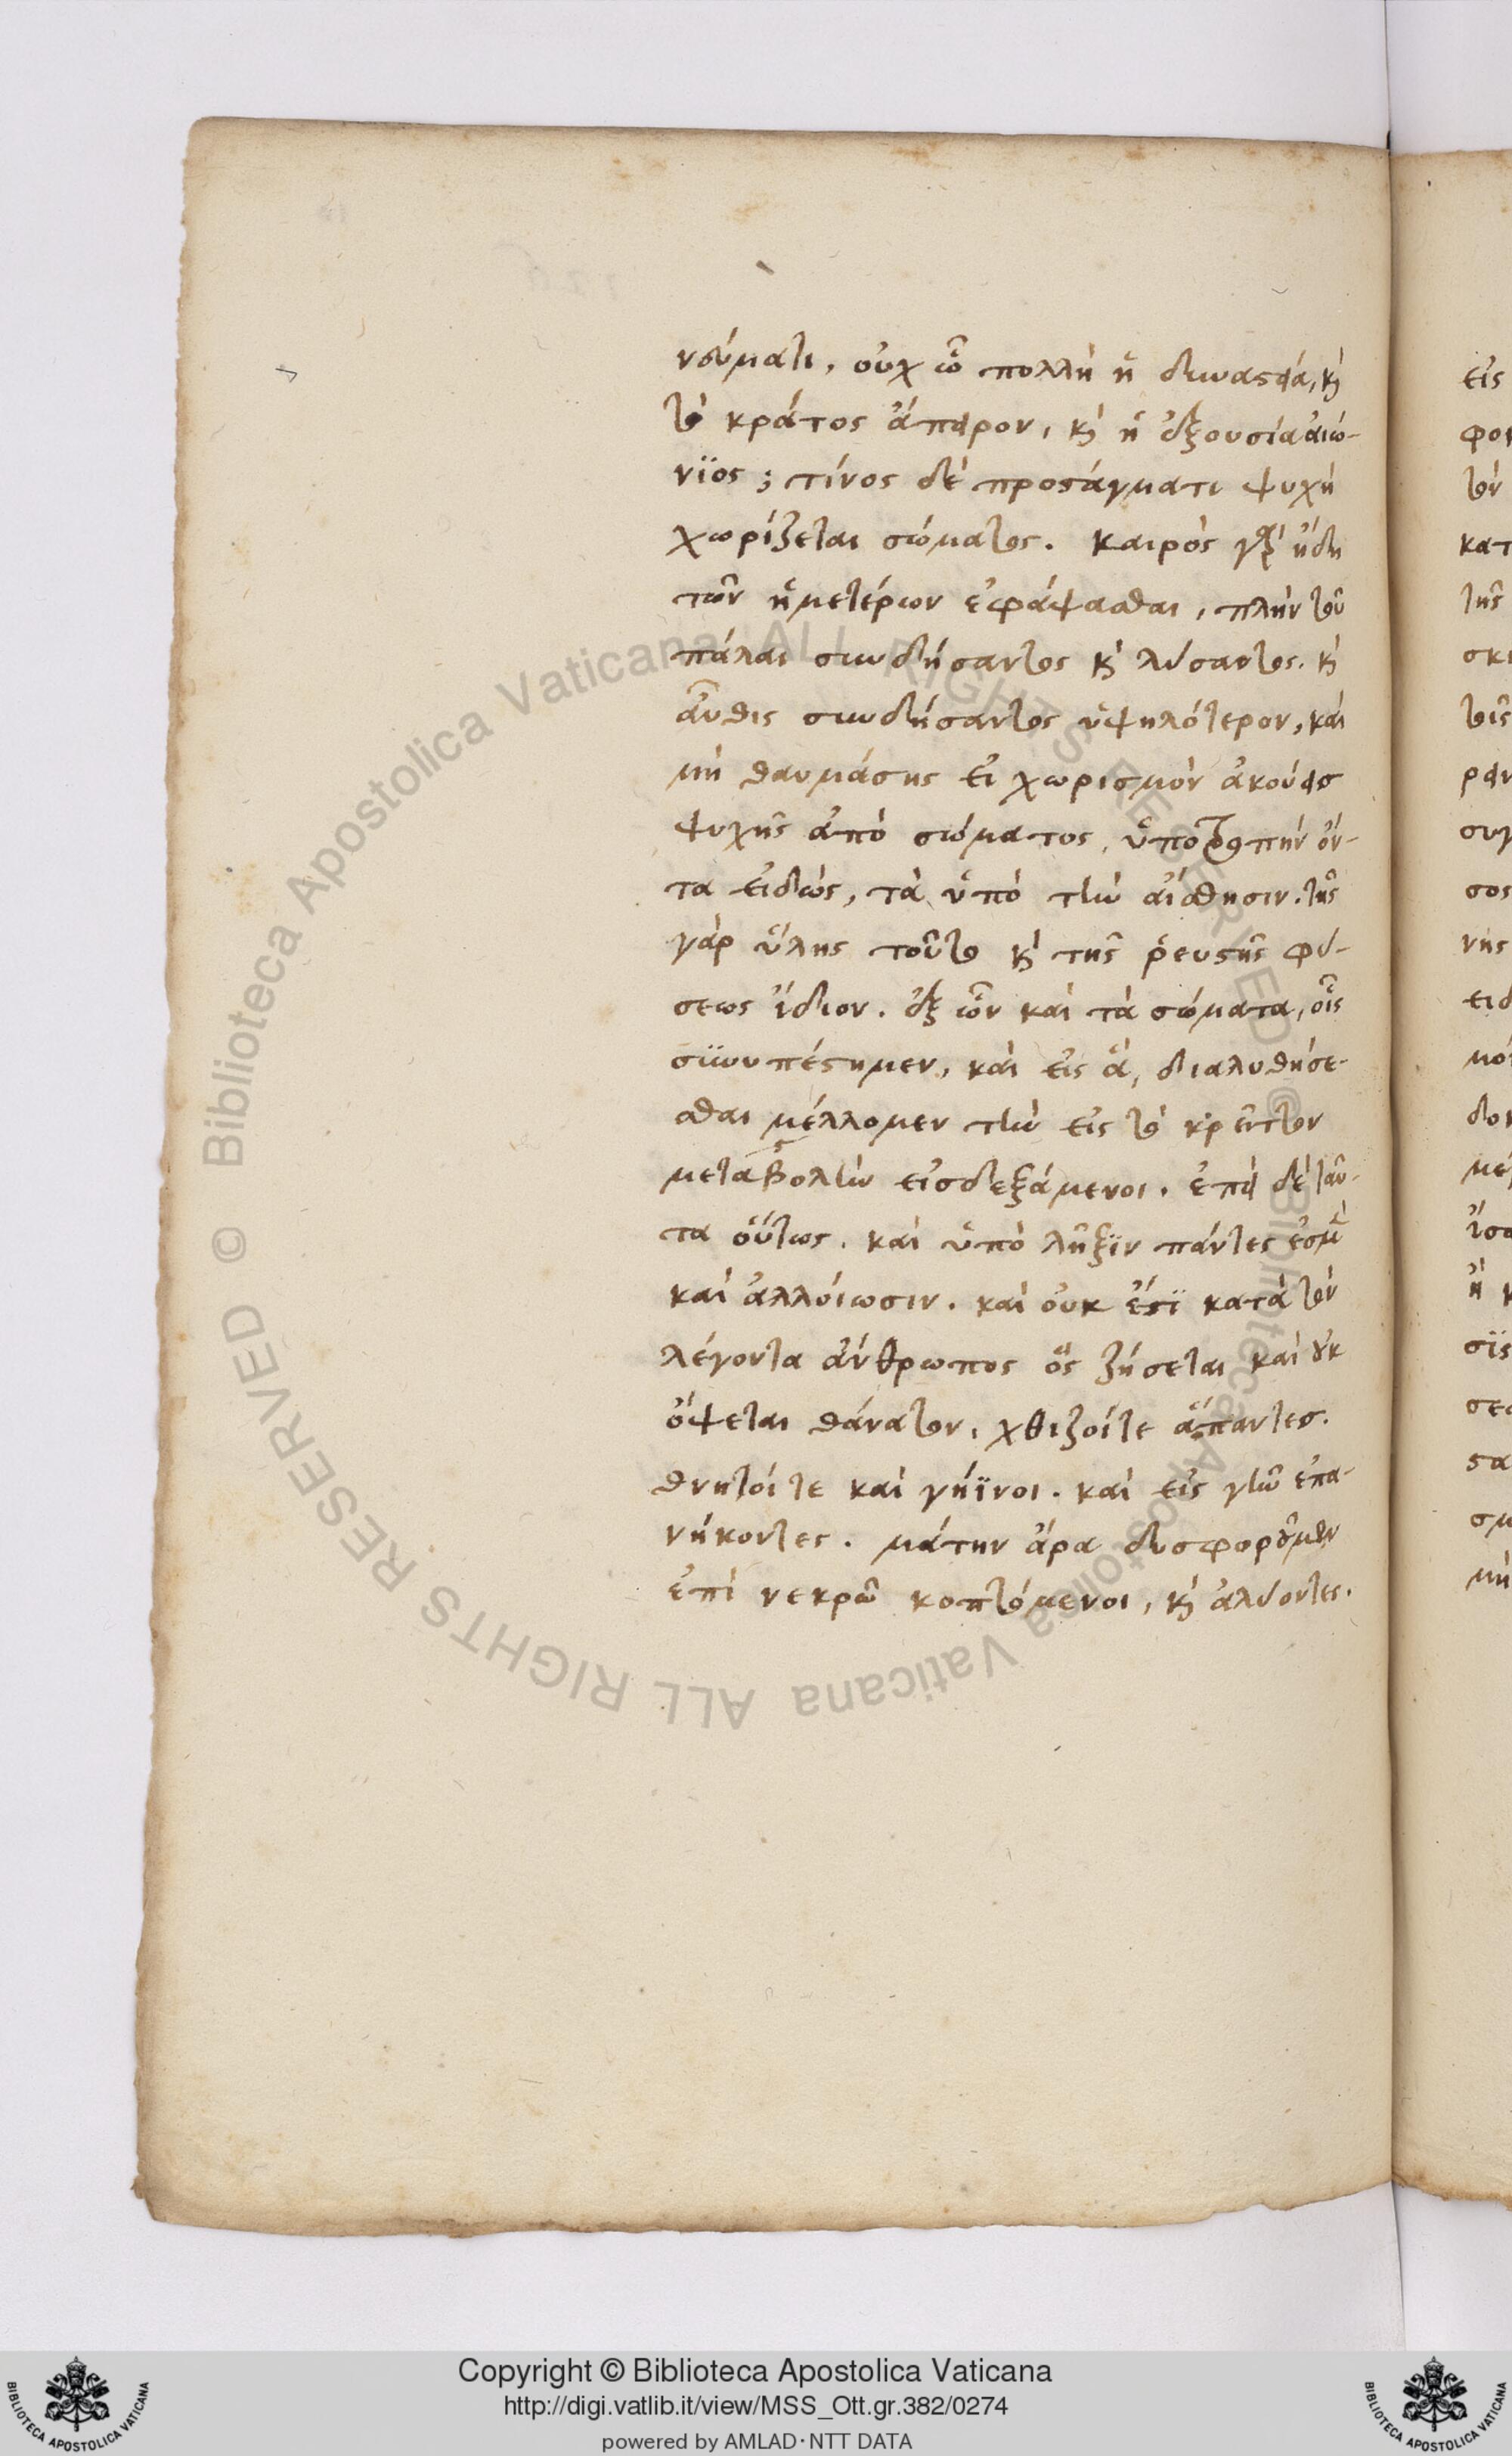 νεύματι, οὐχ ὧ πολλὴ ἡ δυναστεία, κ̀
τὸ κράτος ἄπειρον, κ̀ ἡ ἐξουσία αἰώ-
νϊος; τίνος δὲ προστάγματι ψυχὴ
χωρίζεται σώματος. καιρὸς γὰρ ἤδη
τῶν ἡμετέρων ἐφάψασθαι, πλὴν τοῦ
πάλαι συνδήσαντος κ̀ λύσαντος. κ̀
αὖθις συνδήσαντος ὑψηλότερον, καὶ
μὴ θαυμάσης εἰ χωρισμὸν ἀκούεις
ψυχῆς ἀπὸ σώματος, ὑπὸ τροπὴν ὄν-
τα εἰδὼς, τὰ ὑπὸ τὴν αἴσθησιν. τῆς
γὰρ ὕλης τοῦτο κ̀ τῆς ῥευστῆς φύ-
σεως ἴδιον. ἐξ ὧν καὶ τὰ σώματα, οἷς
σϋνυπέστημεν, καὶ εἰς ἃ, διαλυθήσε-
σθαι μέλλομεν τὴν εἰς τὸ κρεῖττον
μεταβολὴν εἰσδεξάμενοι. ἐπεὶ δὲ ταῦ-
τα οὕτως. καὶ ὑπὸ λῆξϊν πάντες ἐσμὲν
καὶ ἀλλοίωσιν. καὶ οὐκ ἔστϊ κατὰ τὸν
λέγοντα ἄνθρωπος ὃς ζήσεται καὶ οὐκ
ὄψεται θάνατον, χθιζοί τε ἅπαντες.
θνητοί τε καὶ γήϊνοι. καὶ εἰς γῆν ἐπα-
νήκοντες. μάτην ἄρα δυσφοροῦμεν
ἐπὶ νεκρῶ κοπτόμενοι, κ̀ ἀλύοντες.
εἰς
φο
τὸν
κατ
τῆς
σκι
τοῖς
ρειν
συγ
σος
νης
ειδ
μό
δο
μέ
ἴσο
ἢ κ
σϊς
σε
στα
σμ
μὴ
Biblioteca Apostolica Vaticana ALL RIGHTS RESERVED © Biblioteca Apostolica Vaticana ALL RIGHTS RESERVED ©
Copyright © Biblioteca Apostolica Vaticana
http://digi.vatlib.it/view/MSS_Ott.gr.382/0274
powered by AMLAD·NTT DATA
BIBLIOTECA APOSTOLICA VATICANA
BIBLIOTECA APOSTOLICA VATICANA